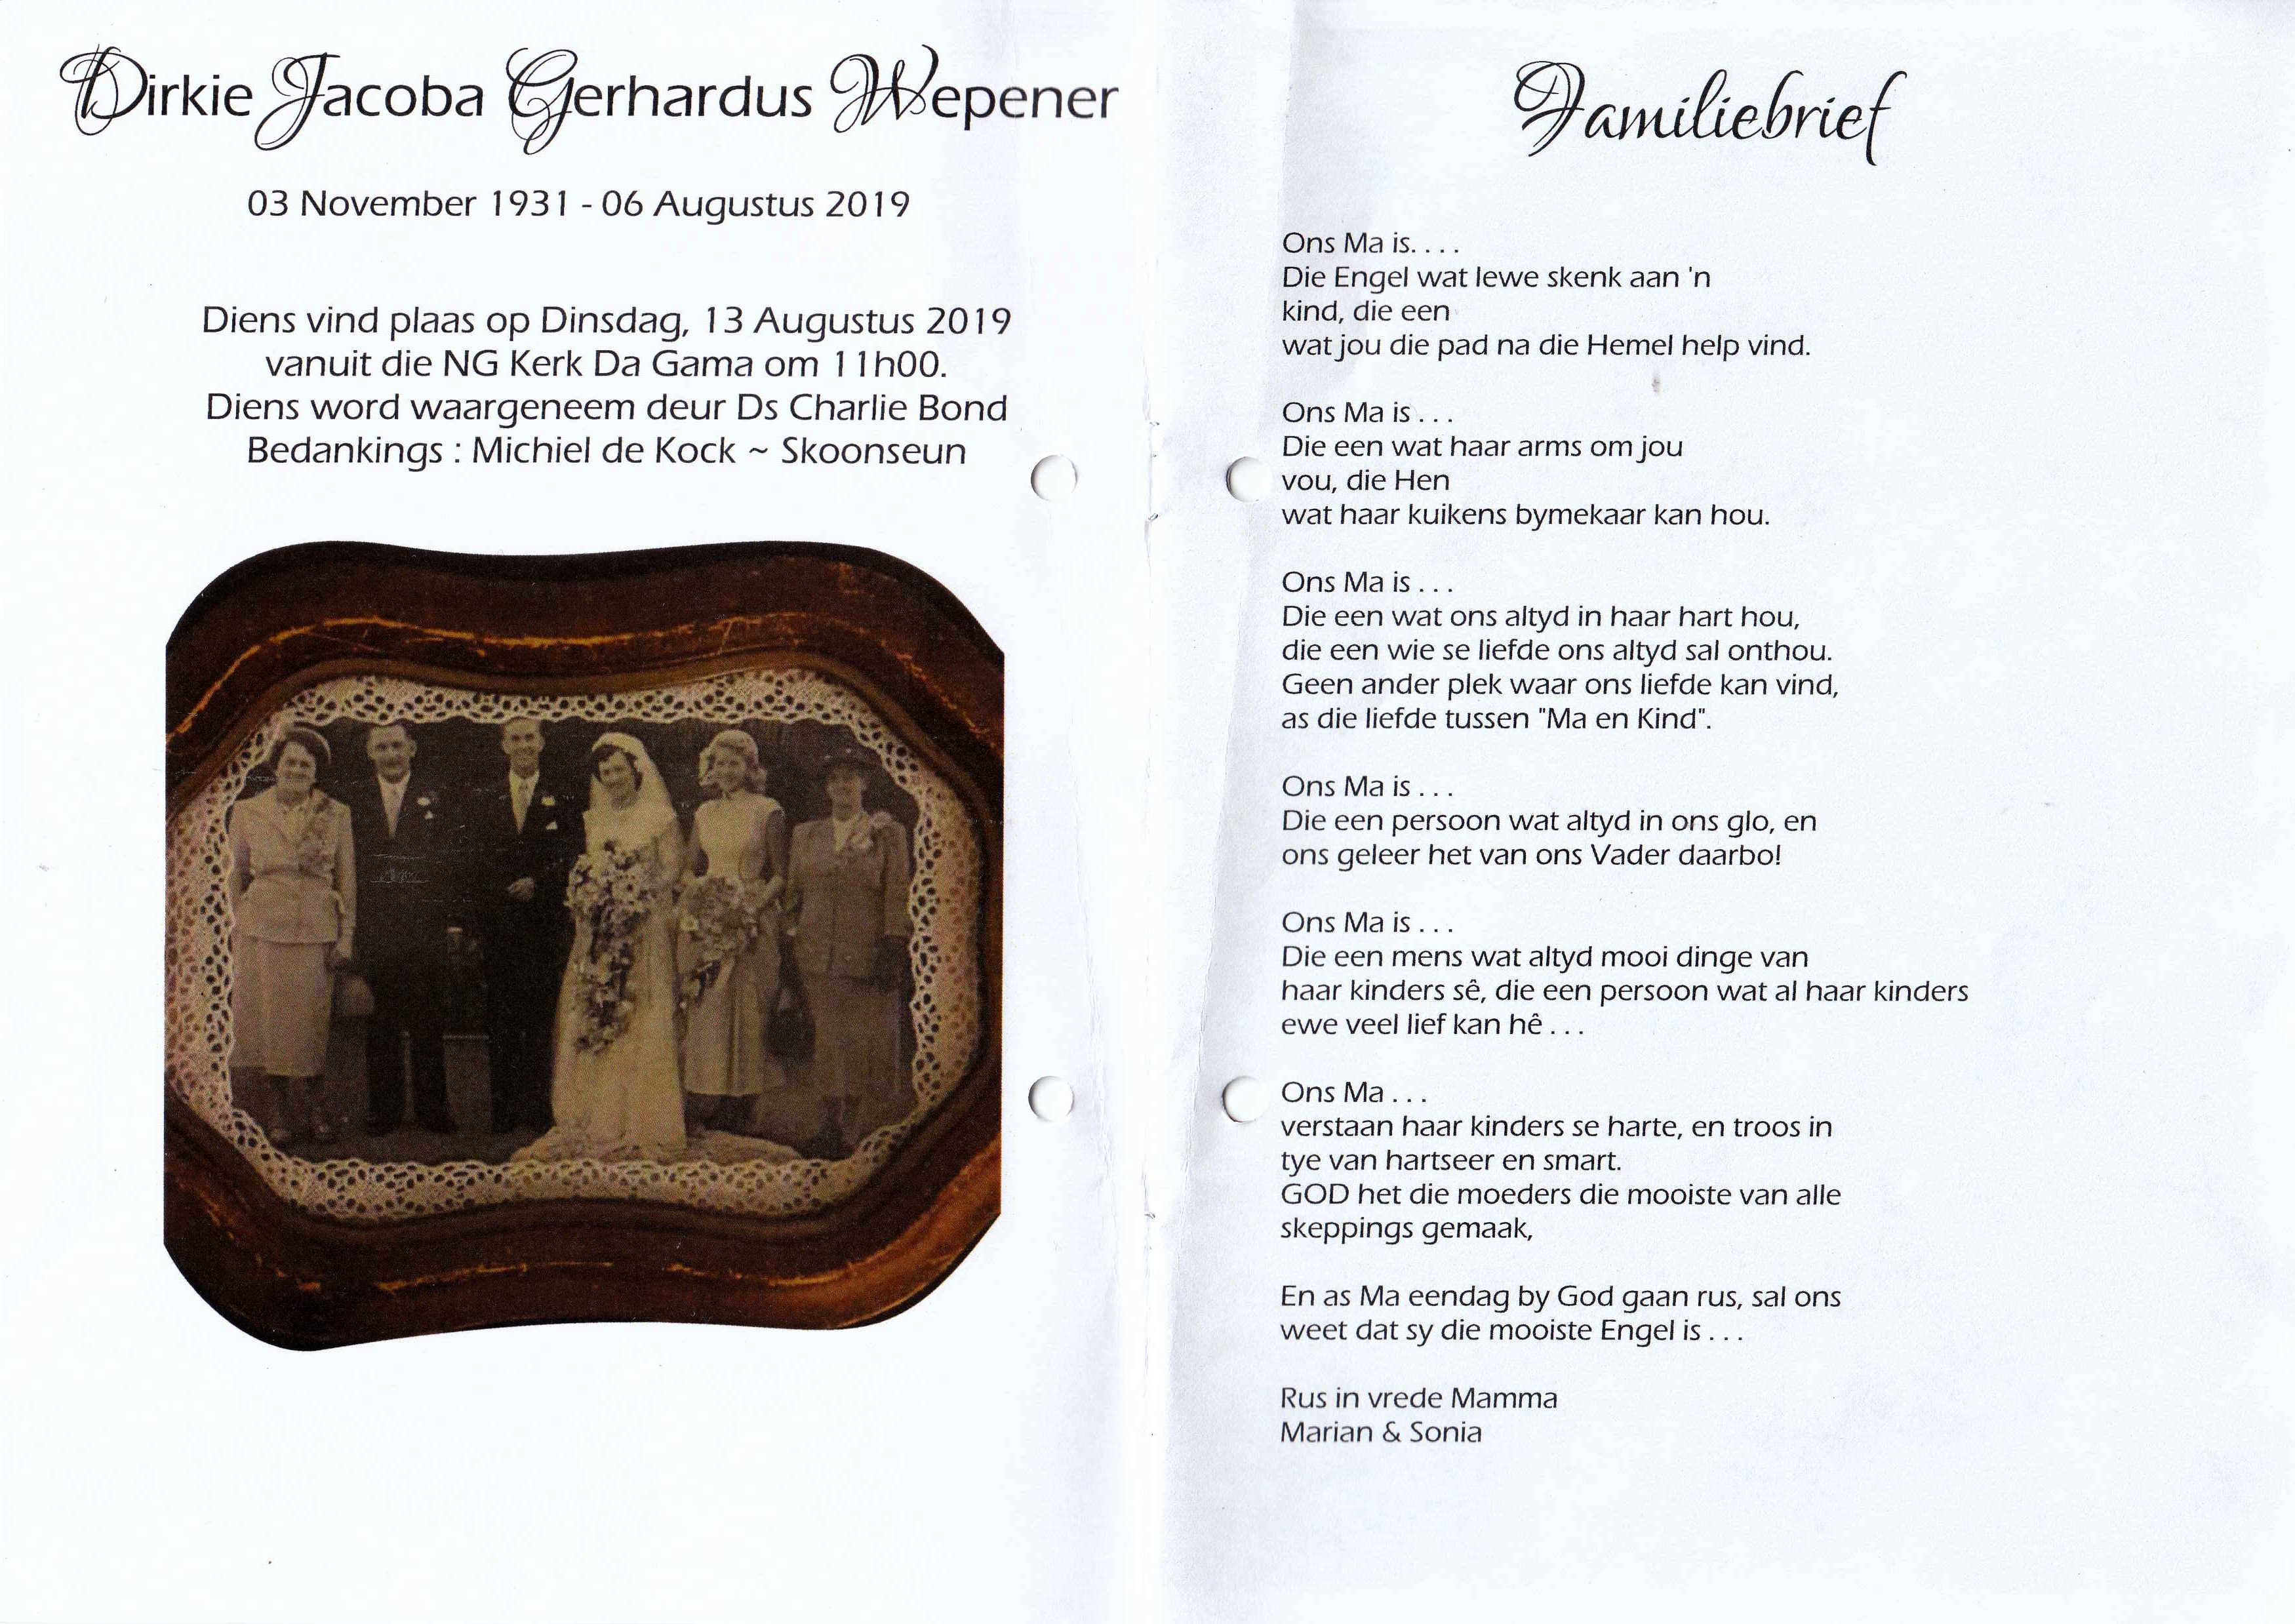 Dirkie Jacoba Gerhardus Wepener
03 November 1931 - 06 Augustus 2019
Diens vind plaas op Dinsdag, 13 Augustus 2019
vanuit die NG Kerk Da Gama om 11h00.
Diens word waargeneem deur Ds Charlie Bond
Bedankings : Michiel de Kock ~ Skoonseun
Familiebrief
Ons Ma is. . . .
Die Engel wat lewe skenk aan 'n
kind, die een
wat jou die pad na die Hemel help vind.
Ons Ma is . . .
Die een wat haar arms om jou
vou, die Hen
wat haar kuikens bymekaar kan hou.
Ons Ma is . . .
Die een wat ons altyd in haar hart hou,
die een wie se liefde ons altyd sal onthou.
Geen ander plek waar ons liefde kan vind,
as die liefde tussen "Ma en Kind".
Ons Ma is . . .
Die een persoon wat altyd in ons glo, en
ons geleer het van ons Vader daarbo!
Ons Ma is . . .
Die een mens wat altyd mooi dinge van
haar kinders sê, die een persoon wat al haar kinders
ewe veel lief kan hê . . .
Ons Ma . . .
verstaan haar kinders se harte, en troos in
tye van hartseer en smart.
GOD het die moeders die mooiste van alle
skeppings gemaak,
En as Ma eendag by God gaan rus, sal ons
weet dat sy die mooiste Engel is . . .
Rus in vrede Mamma
Marian & Sonia